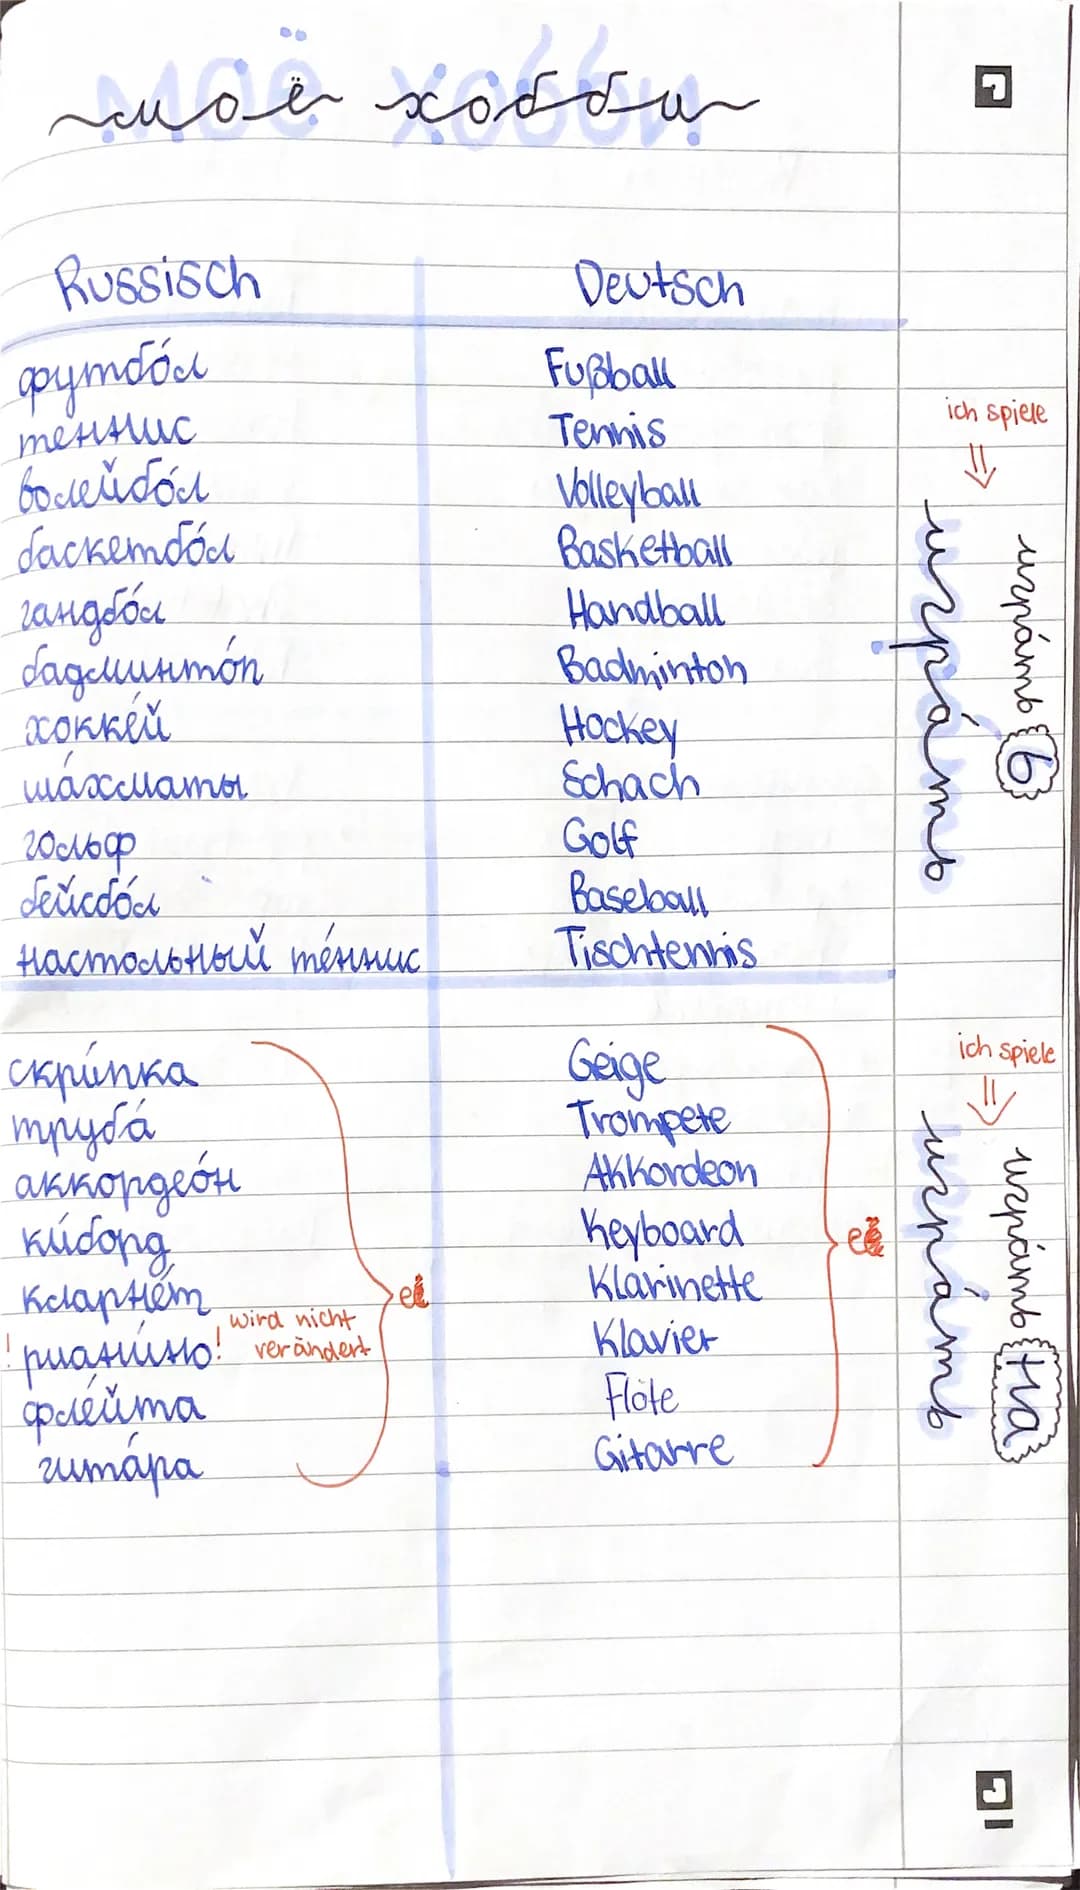 моё хобби
Russisch Deutsch
футбо́л Fußball
теннис Tennis
волейбо́л Volleyball
баскетбо́л Basketball
гандбо́л Handball
бадминто́n Badminton
хокке́й Hockey
ша́хматы Schach
гольф Golf
бейсбо́л Baseball
настольный те́ннис Tischtennis
ich spiele
⇓
игра́ть
игра́ть в
скри́пка Geige
труба́ Trompete
аккордео́н Akkordeon
ки́борд Keyboard
кларне́т Klarinette
! рианино! wird nicht verändert Klavier
фле́йта Flöte
гита́ра Gitarre
ich spiele
⇓
игра́ть
игра́ть на